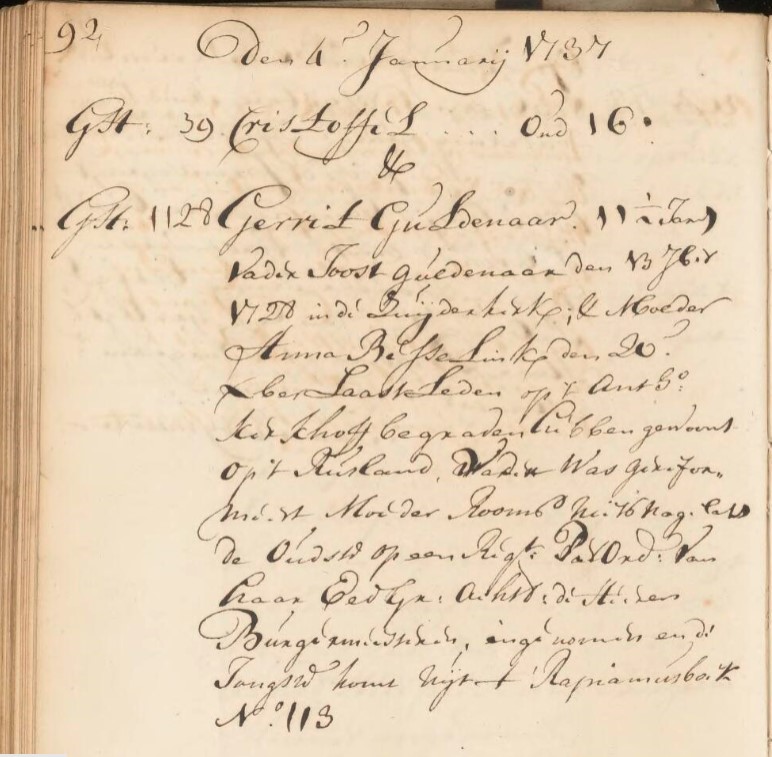 92
den 4.e Januarij 1737
Gst: 39 Cristoffel .... Oud 16.
&
Gst: 1128 Gerrit Guldenaar. 11 1/2 Jaar
Vader Joost guldenaar den 13 7ber
1728 in de Zuijderkerk, & Moeder
Anna Besselink den 20.e
Xber Laastleden op 't Anth.o
kerkhoff begraven hebben gewoont
op 't Rusland, Vader Was gerefor„
meert Moeder Rooms niets nagelat
de Oudste op een Or
d: Van
haar Ed Gr: Achtb: de Heeren
Burgermeesteren, ingenomen en de
Jongste komt uijt 't Rapiamusboek
N.o 113